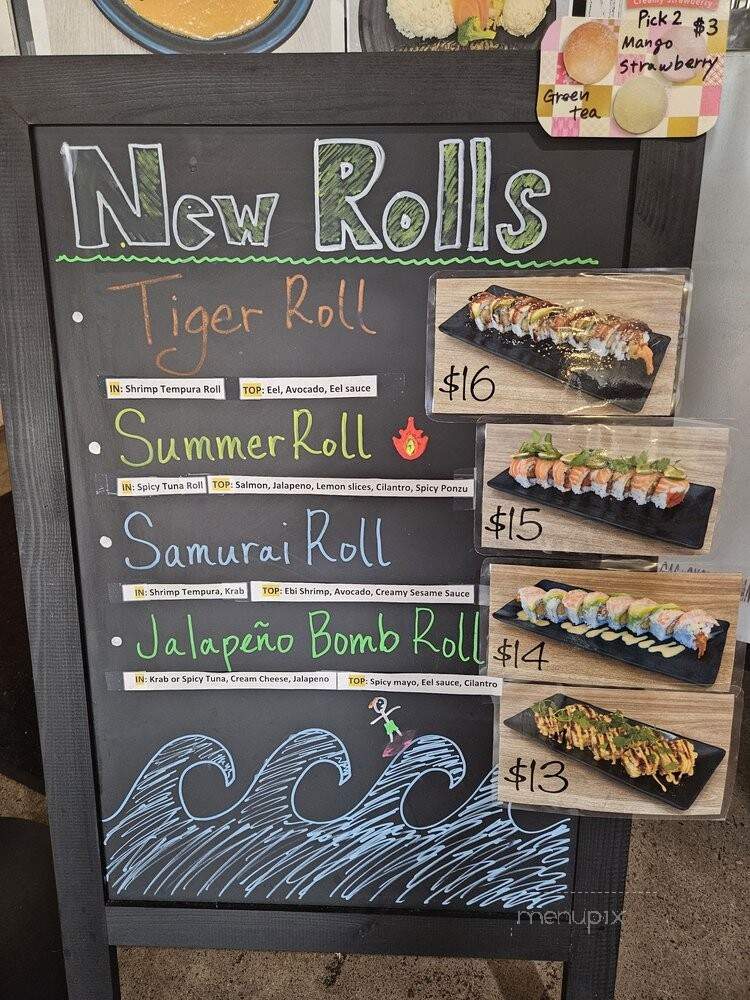 Creamy Strawberry
Pick 2 $3
Mango
Strawberry
Green
tea
New Rolls
Tiger Roll
IN: Shrimp Tempura Roll TOP: Eel, Avocado, Eel sauce
$16
Summer Roll
IN: Spicy Tuna Roll TOP: Salmon, Jalapeno, Lemon slices, Cilantro, Spicy Ponzu
$15
Samurai Roll
IN: Shrimp Tempura, Krab TOP: Ebi Shrimp, Avocado, Creamy Sesame Sauce
$14
Jalapeño Bomb Roll
IN: Krab or Spicy Tuna, Cream Cheese, Jalapeno TOP: Spicy mayo, Eel sauce, Cilantro
$13
menupix